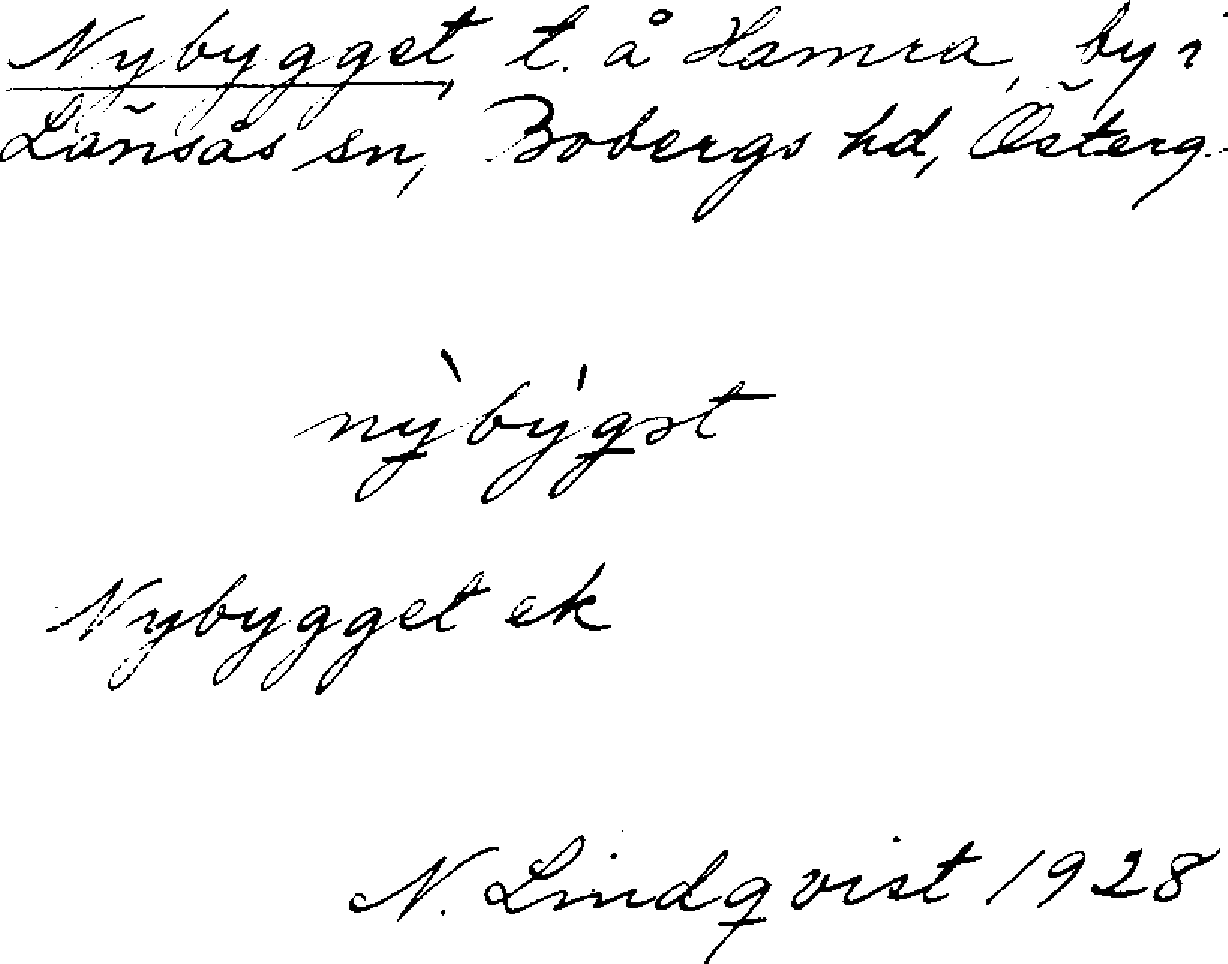 Nybygget, t. å Hamra, by i
Lönsås sn, Bobergs hd, Österg.
nỳbýgət
Nybygget ek
N. Lindqvist 1928